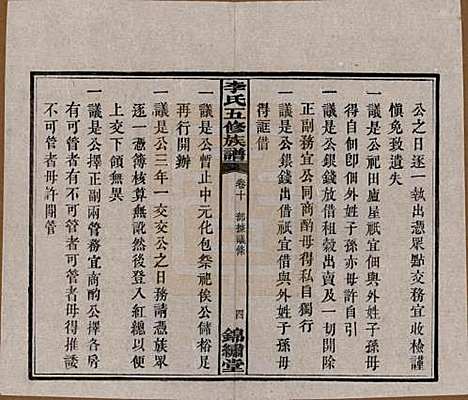 公之日逐一執出憑眾點交務宜收檢謹
慎免致遺失
一議是公祀田廬屋祇宜佃與外姓子孫毋
得自佃卽佃外姓子孫亦毋許自引
一議是公銀錢放借租穀出賣及一切開除
正副務宜公同商酌毋得私自獨行
一議是公銀錢出借祇宜借與外姓子孫毋
得誆借
李氏五修族譜
卷十
四
錦繡堂
一議是公暫止中元化包祭祀俟公儲裕足
再行開辦
一議是公三年一交交公之日務請憑族眾
逐一憑簿核算無訛然後登入紅總以便
上交下領無異
一議是公擇正副兩管務宜商酌公擇各房
有可管者有不可管者可管者毋得推諉
不可管者毋許鬧管